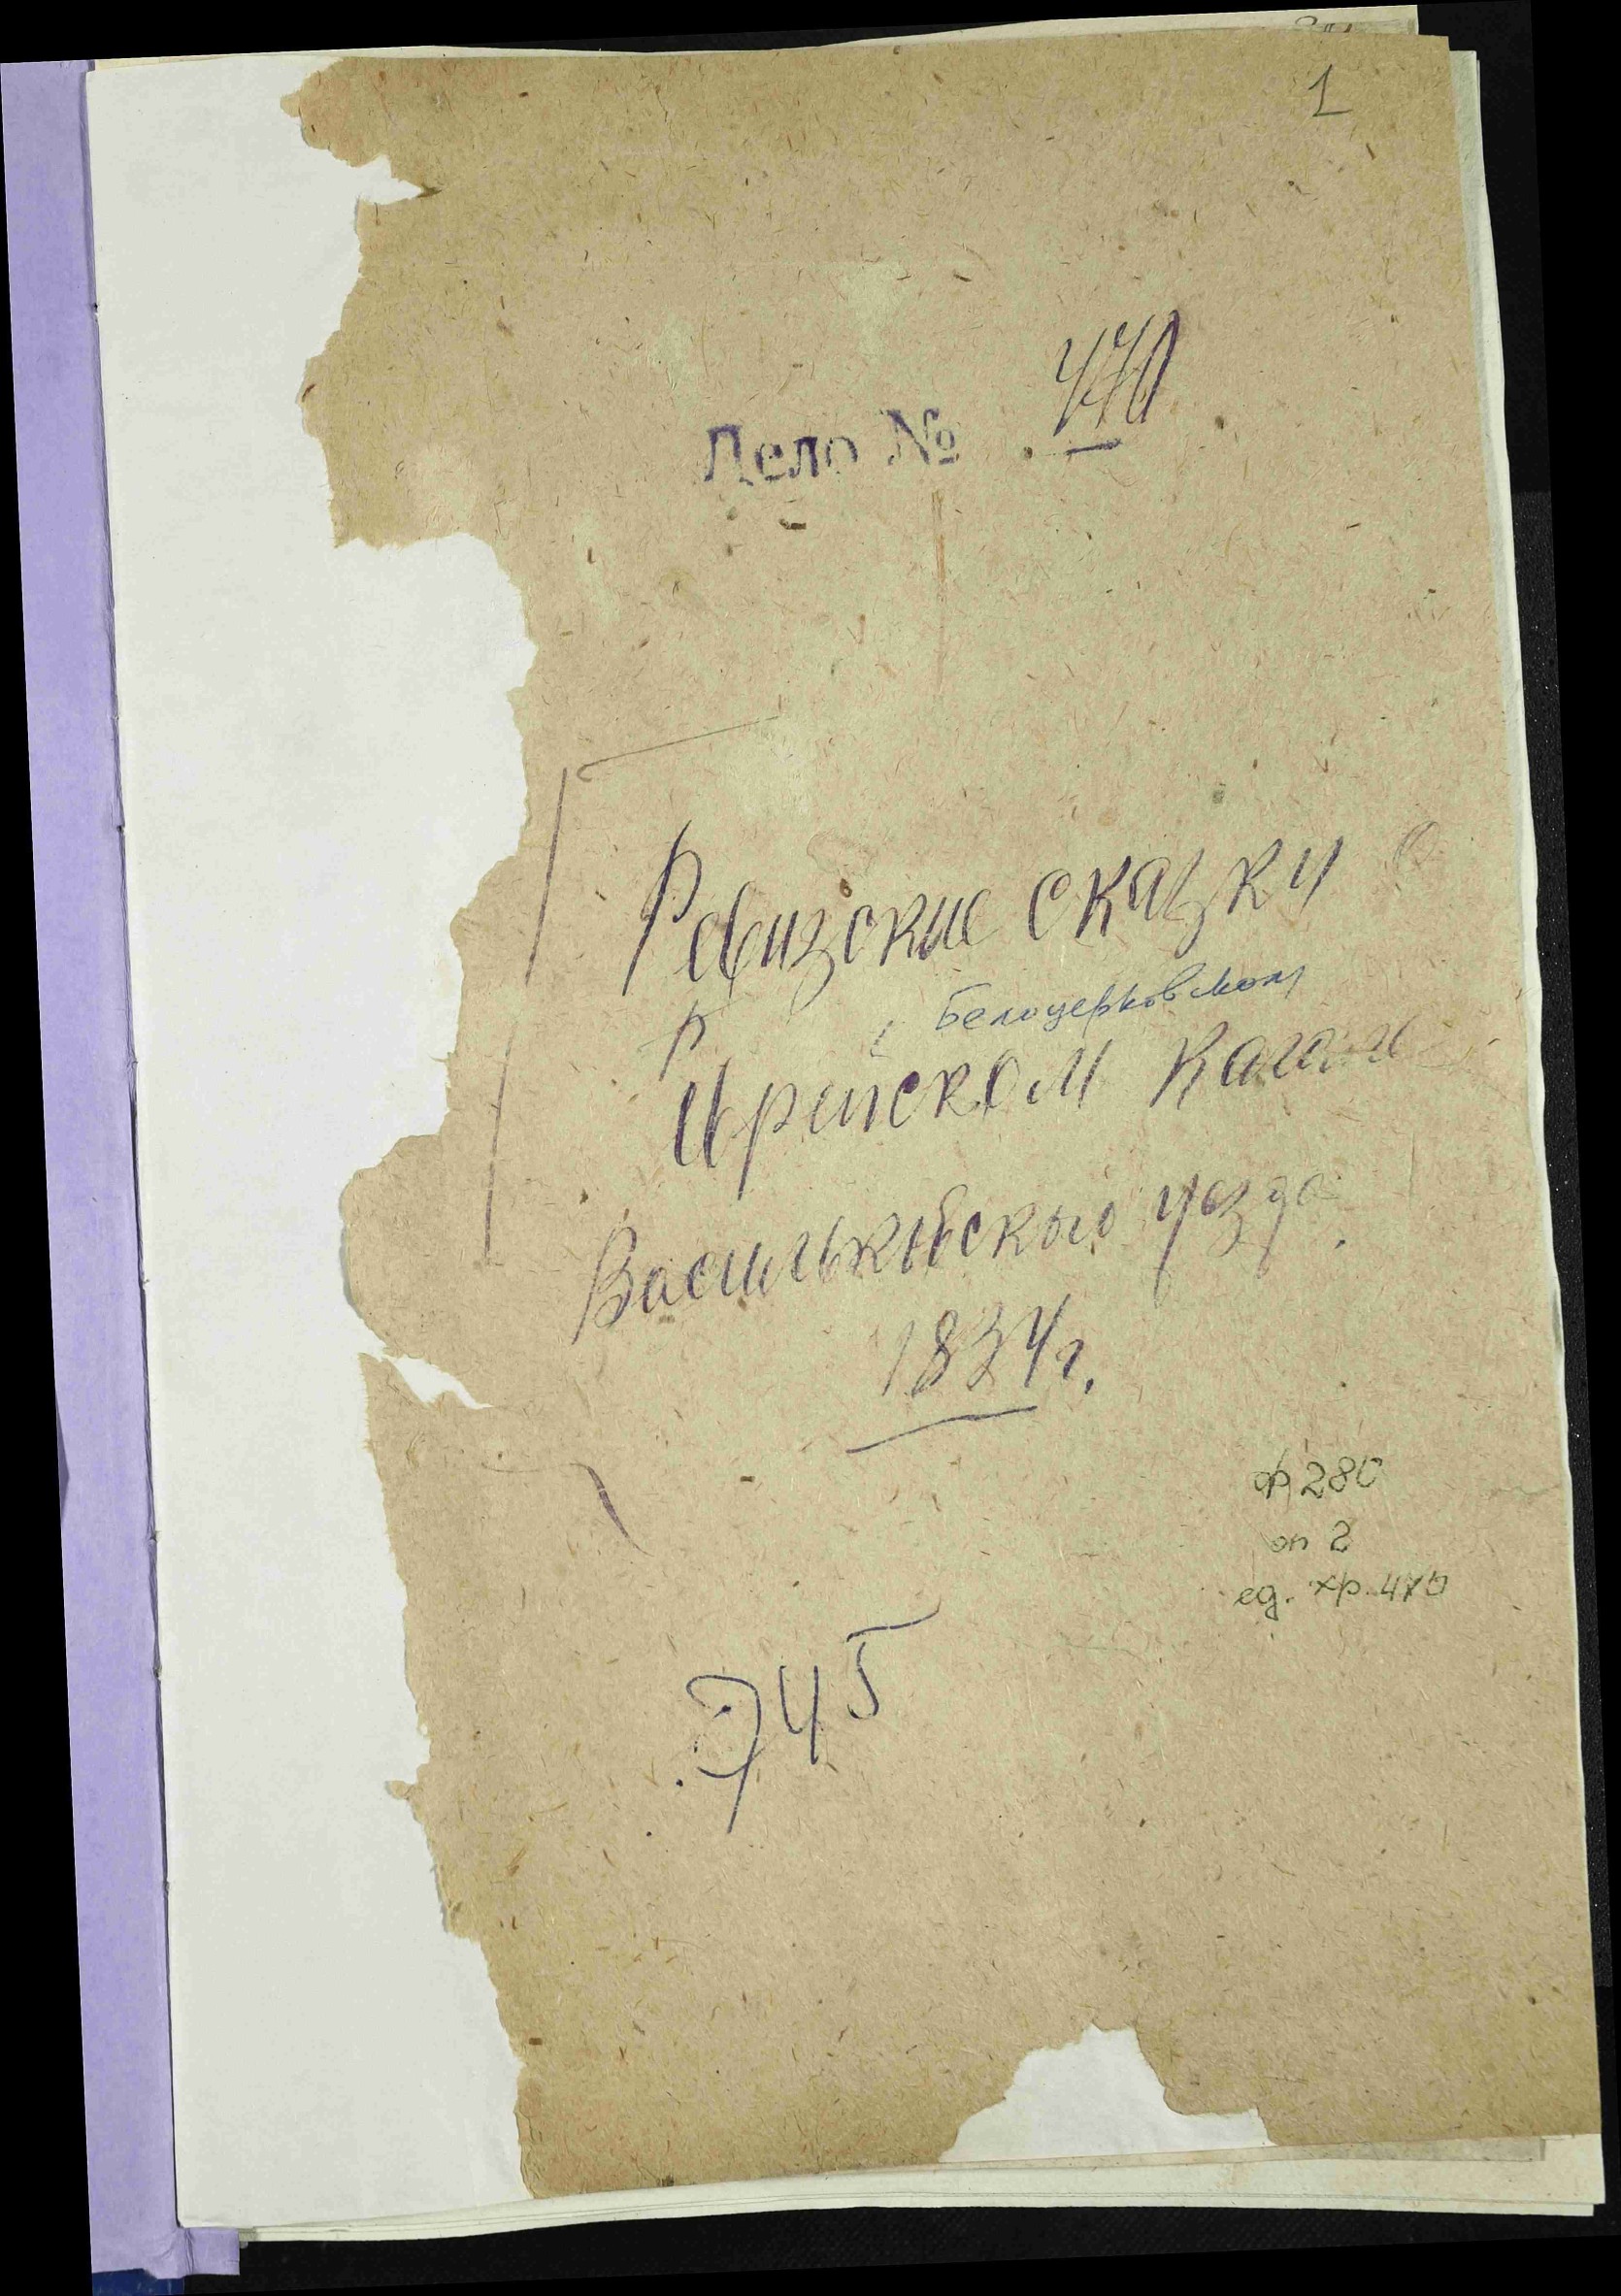 1
Дело № 470
Ревизские сказки о
Белоцерковском
Кагале
Васильковского уезда.
1834 г.
ф 280
оп 2
ед. хр. 470
745